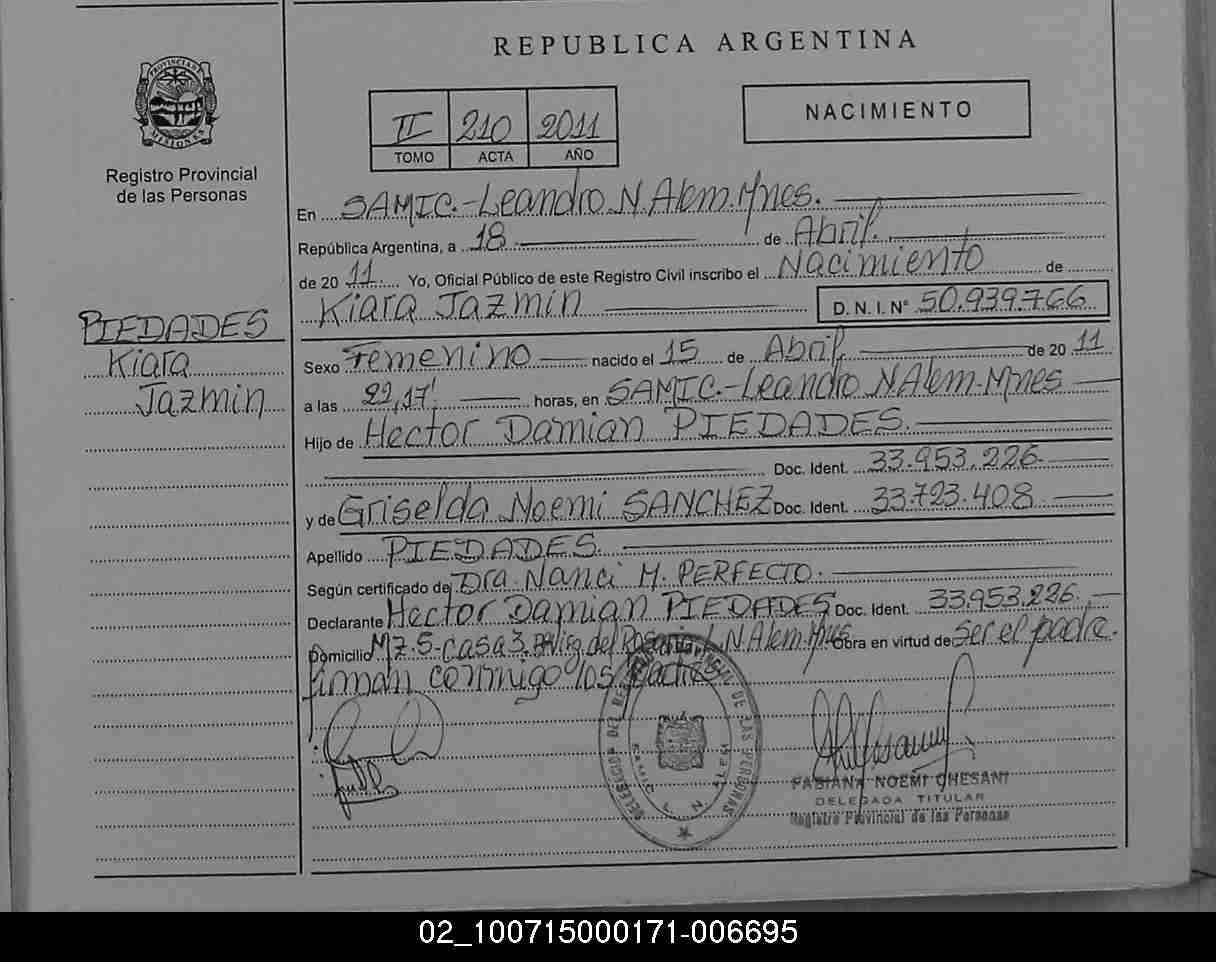 REPUBLICA ARGENTINA
PROVINCIA DE MISIONES
Registro Provincial
de las Personas
II 210 2011
TOMO ACTA AÑO
NACIMIENTO
En SAMIC.-Leandro N. Alem. Mnes.
República Argentina, a 18 de Abril.
de 20 11. Yo, Oficial Público de este Registro Civil inscribo el Nacimiento de
Kiara Jazmin D. N. I. N° 50.939.766
PIEDADES
Kiara
Jazmin
Sexo Femenino nacido el 15 de Abril de 20 11
a las 22,17' horas, en SAMIC.-Leandro N Alem-Mnes
Hijo de Hector Damian PIEDADES.
Doc. Ident. 33.953.226.
y de Griselda Noemi SANCHEZ Doc. Ident. 33.723.408
Apellido PIEDADES.
Según certificado de Dra. Nanci M. PERFECTO.
Declarante Hector Damian PIEDADES Doc. Ident. 33.953.226.
Domicilio Mz.5-casa 3. del Rosario L.N Alem. Mnes Obra en virtud de ser el padre.
firman conmigo los padres
DELEGACION DEL REGISTRO PROVINCIAL DE LAS PERSONAS
SAMIC L. N. ALEM
FABIANA NOEMI CHESANI
DELEGADA TITULAR
Registro Provincial de las Personas
02_100715000171-006695